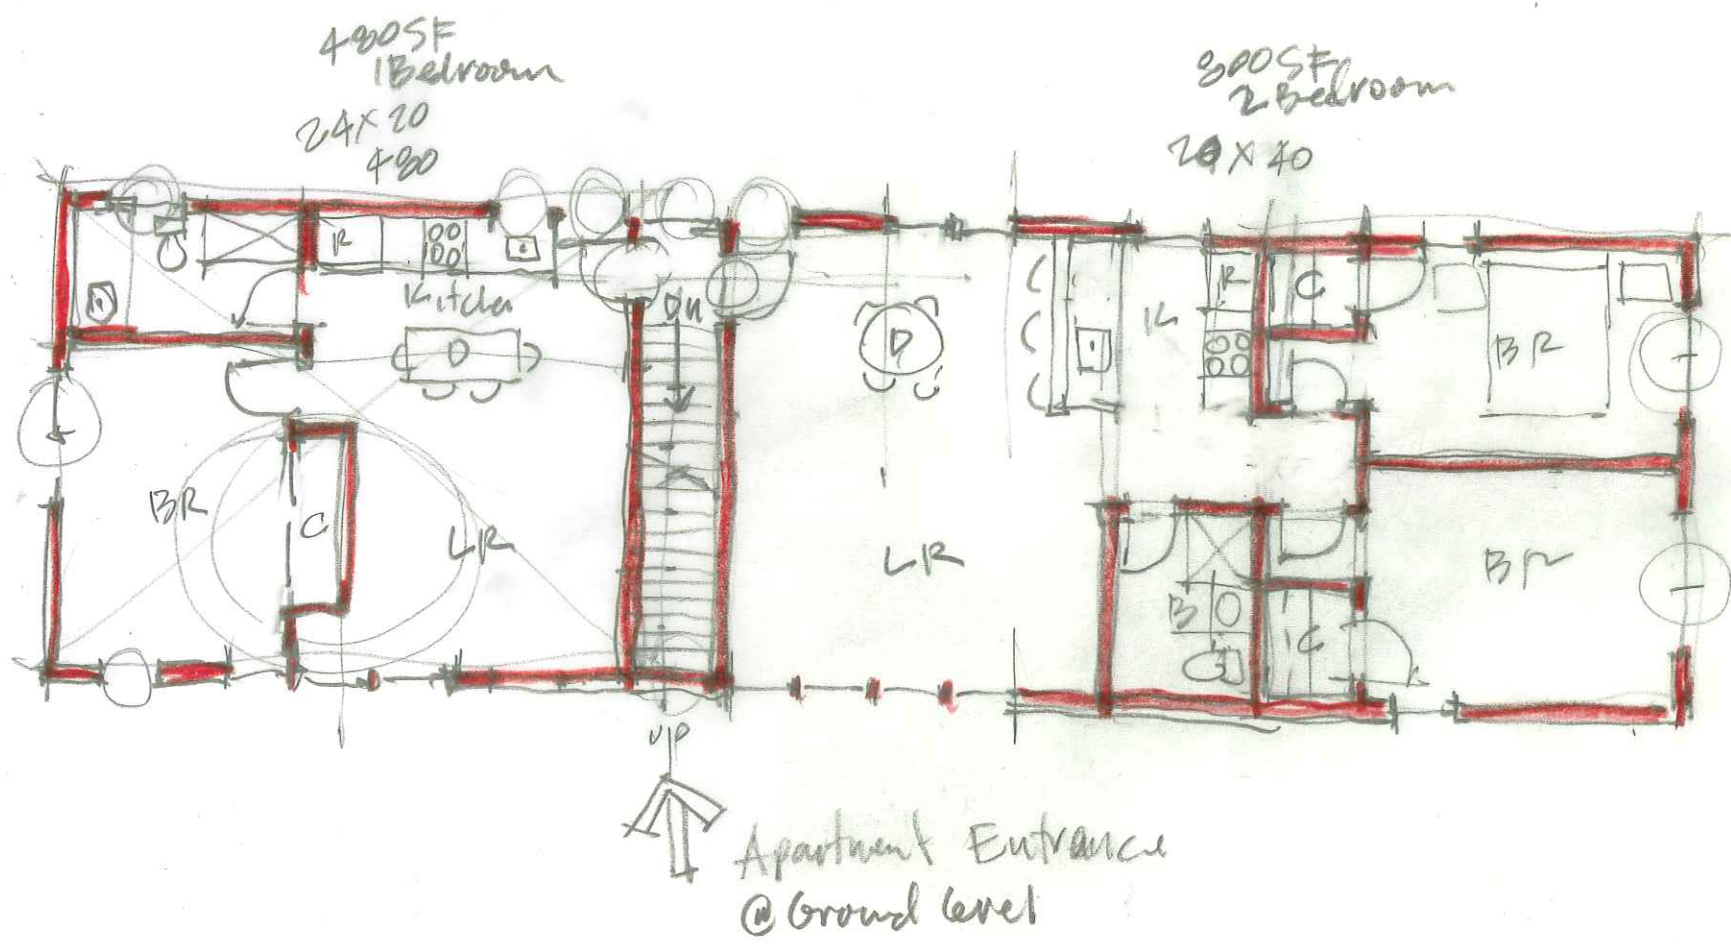 480 SF
1 Bedroom
24 X 20
480
800 SF
2 Bedroom
20 X 40
R
Kitchen
D
Dn
BR
C
LR
D
K
R
C
BR
LR
B
C
BR
UP
Apartment Entrance
@ Ground level